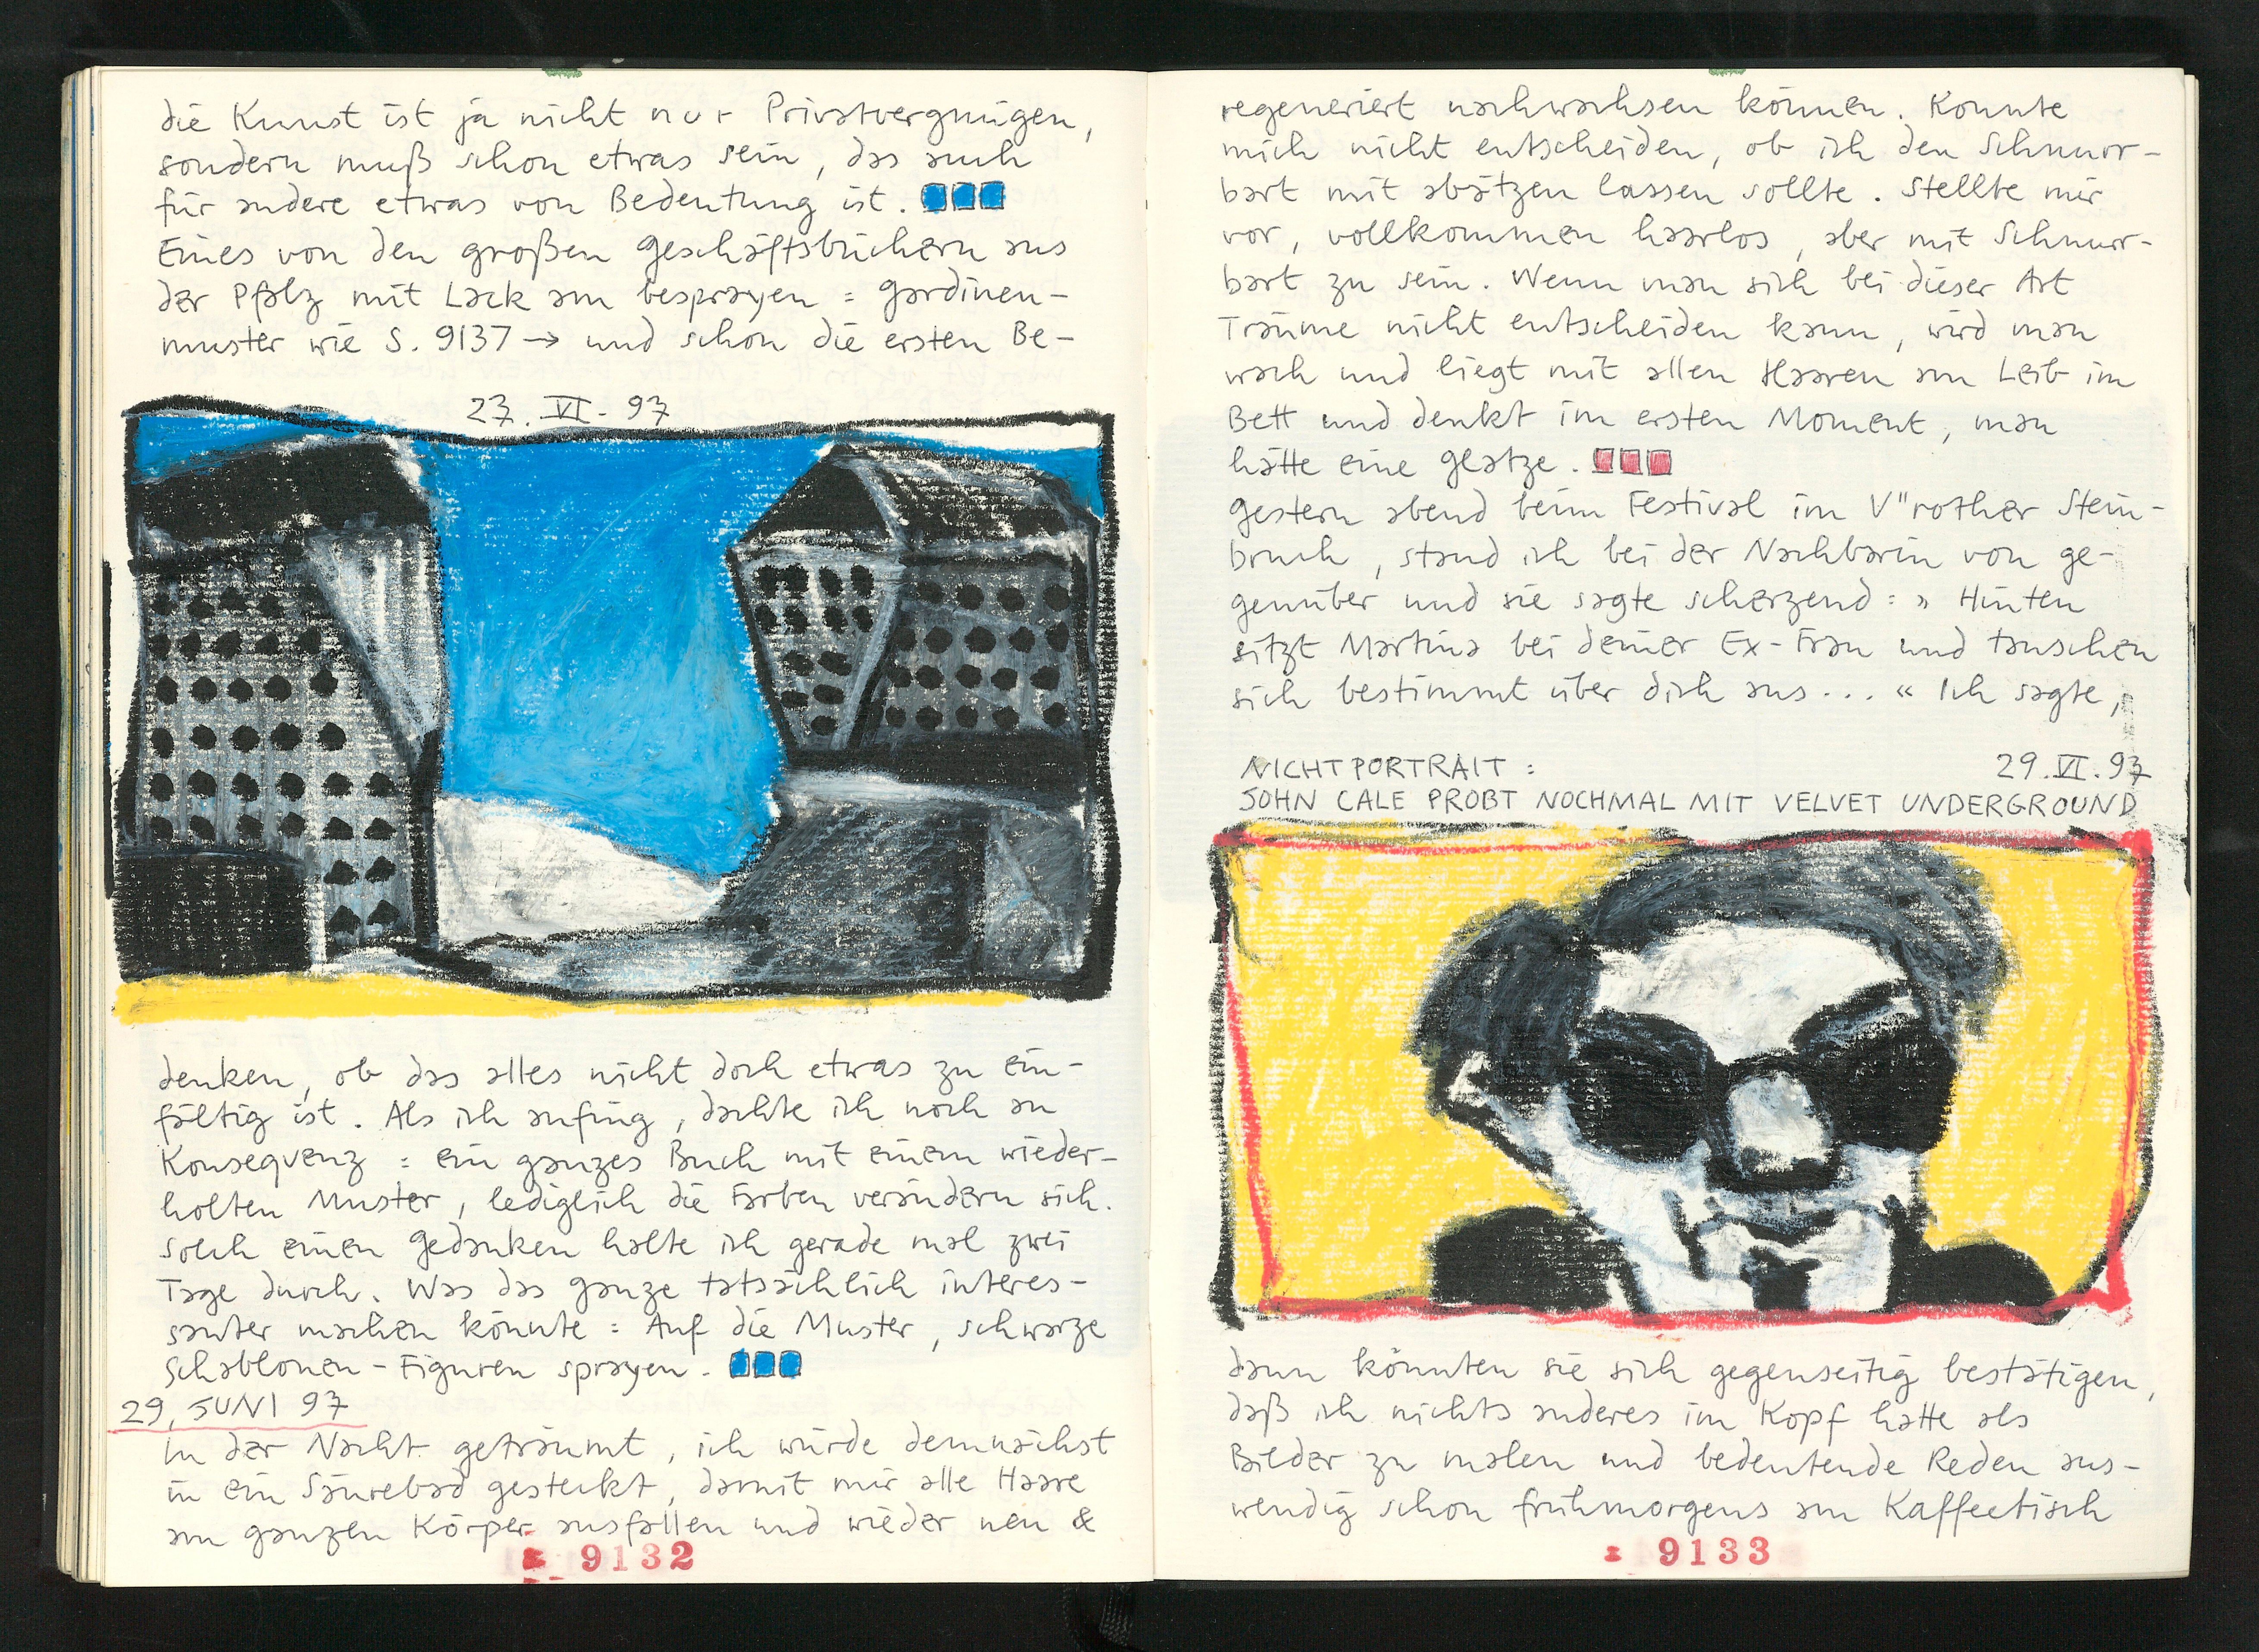 die Kunst ist ja nicht nur Privatvergnügen,
sondern muß schon etwas sein, das auch
für andere etwas von Bedeutung ist.
Eines von den großen Geschäftsbüchern aus
der Pfalz mit Lack am besprayen = Gardinen-
muster wie S. 9137 → und schon die ersten Be-
27. VI. 97
denken, ob das alles nicht doch etwas zu ein-
fältig ist. Als ich anfing, dachte ich noch an
Konsequenz = ein ganzes Buch mit einem wieder-
holten Muster, lediglich die Farben verändern sich.
Solch einen Gedanken halte ich gerade mal zwei
Tage durch. Was das ganze tatsächlich interes-
santer machen könnte = Auf die Muster, schwarze
Schablonen-Figuren sprayen.
29. JUNI 97
In der Nacht geträumt, ich würde demnächst
in ein Säurebad gesteckt, damit mir alle Haare
am ganzen Körper ausfallen und wieder neu &
9132
regeneriert nachwachsen können. Konnte
mich nicht entscheiden, ob ich den Schnurr-
bart mit abätzen lassen sollte. Stellte mir
vor, vollkommen haarlos, aber mit Schnurr-
bart zu sein. Wenn man sich bei dieser Art
Träume nicht entscheiden kann, wird man
wach und liegt mit allen Haaren am Leib im
Bett und denkt im ersten Moment, man
hätte eine Glatze.
Gestern abend beim Festival im V"rother Stein-
bruch, stand ich bei der Nachbarin von ge-
genüber und sie sagte scherzend: » Hinten
sitzt Martina bei deiner Ex-Frau und tauschen
sich bestimmt über dich aus... « Ich sagte,
NICHTPORTRAIT: 29.VI.97
JOHN CALE PROBT NOCHMAL MIT VELVET UNDERGROUND
dann könnten sie sich gegenseitig bestätigen,
daß ich nichts anderes im Kopf hätte als
Bilder zu malen und bedeutende Reden aus-
wendig schon frühmorgens am Kaffeetisch
9133